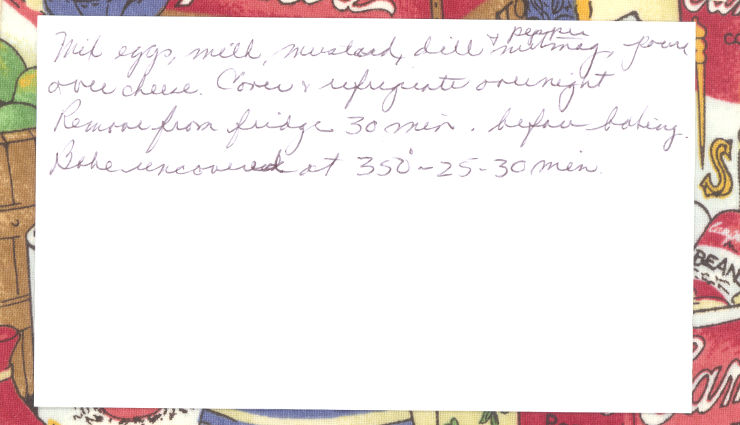 pepper
Mix eggs, milk, mustard, dill & nutmeg, pour
over cheese. Cover & refrigerate overnight
Remove from fridge 30 min. before baking.
Bake uncovered at 350°-25-30 min.
BEAN